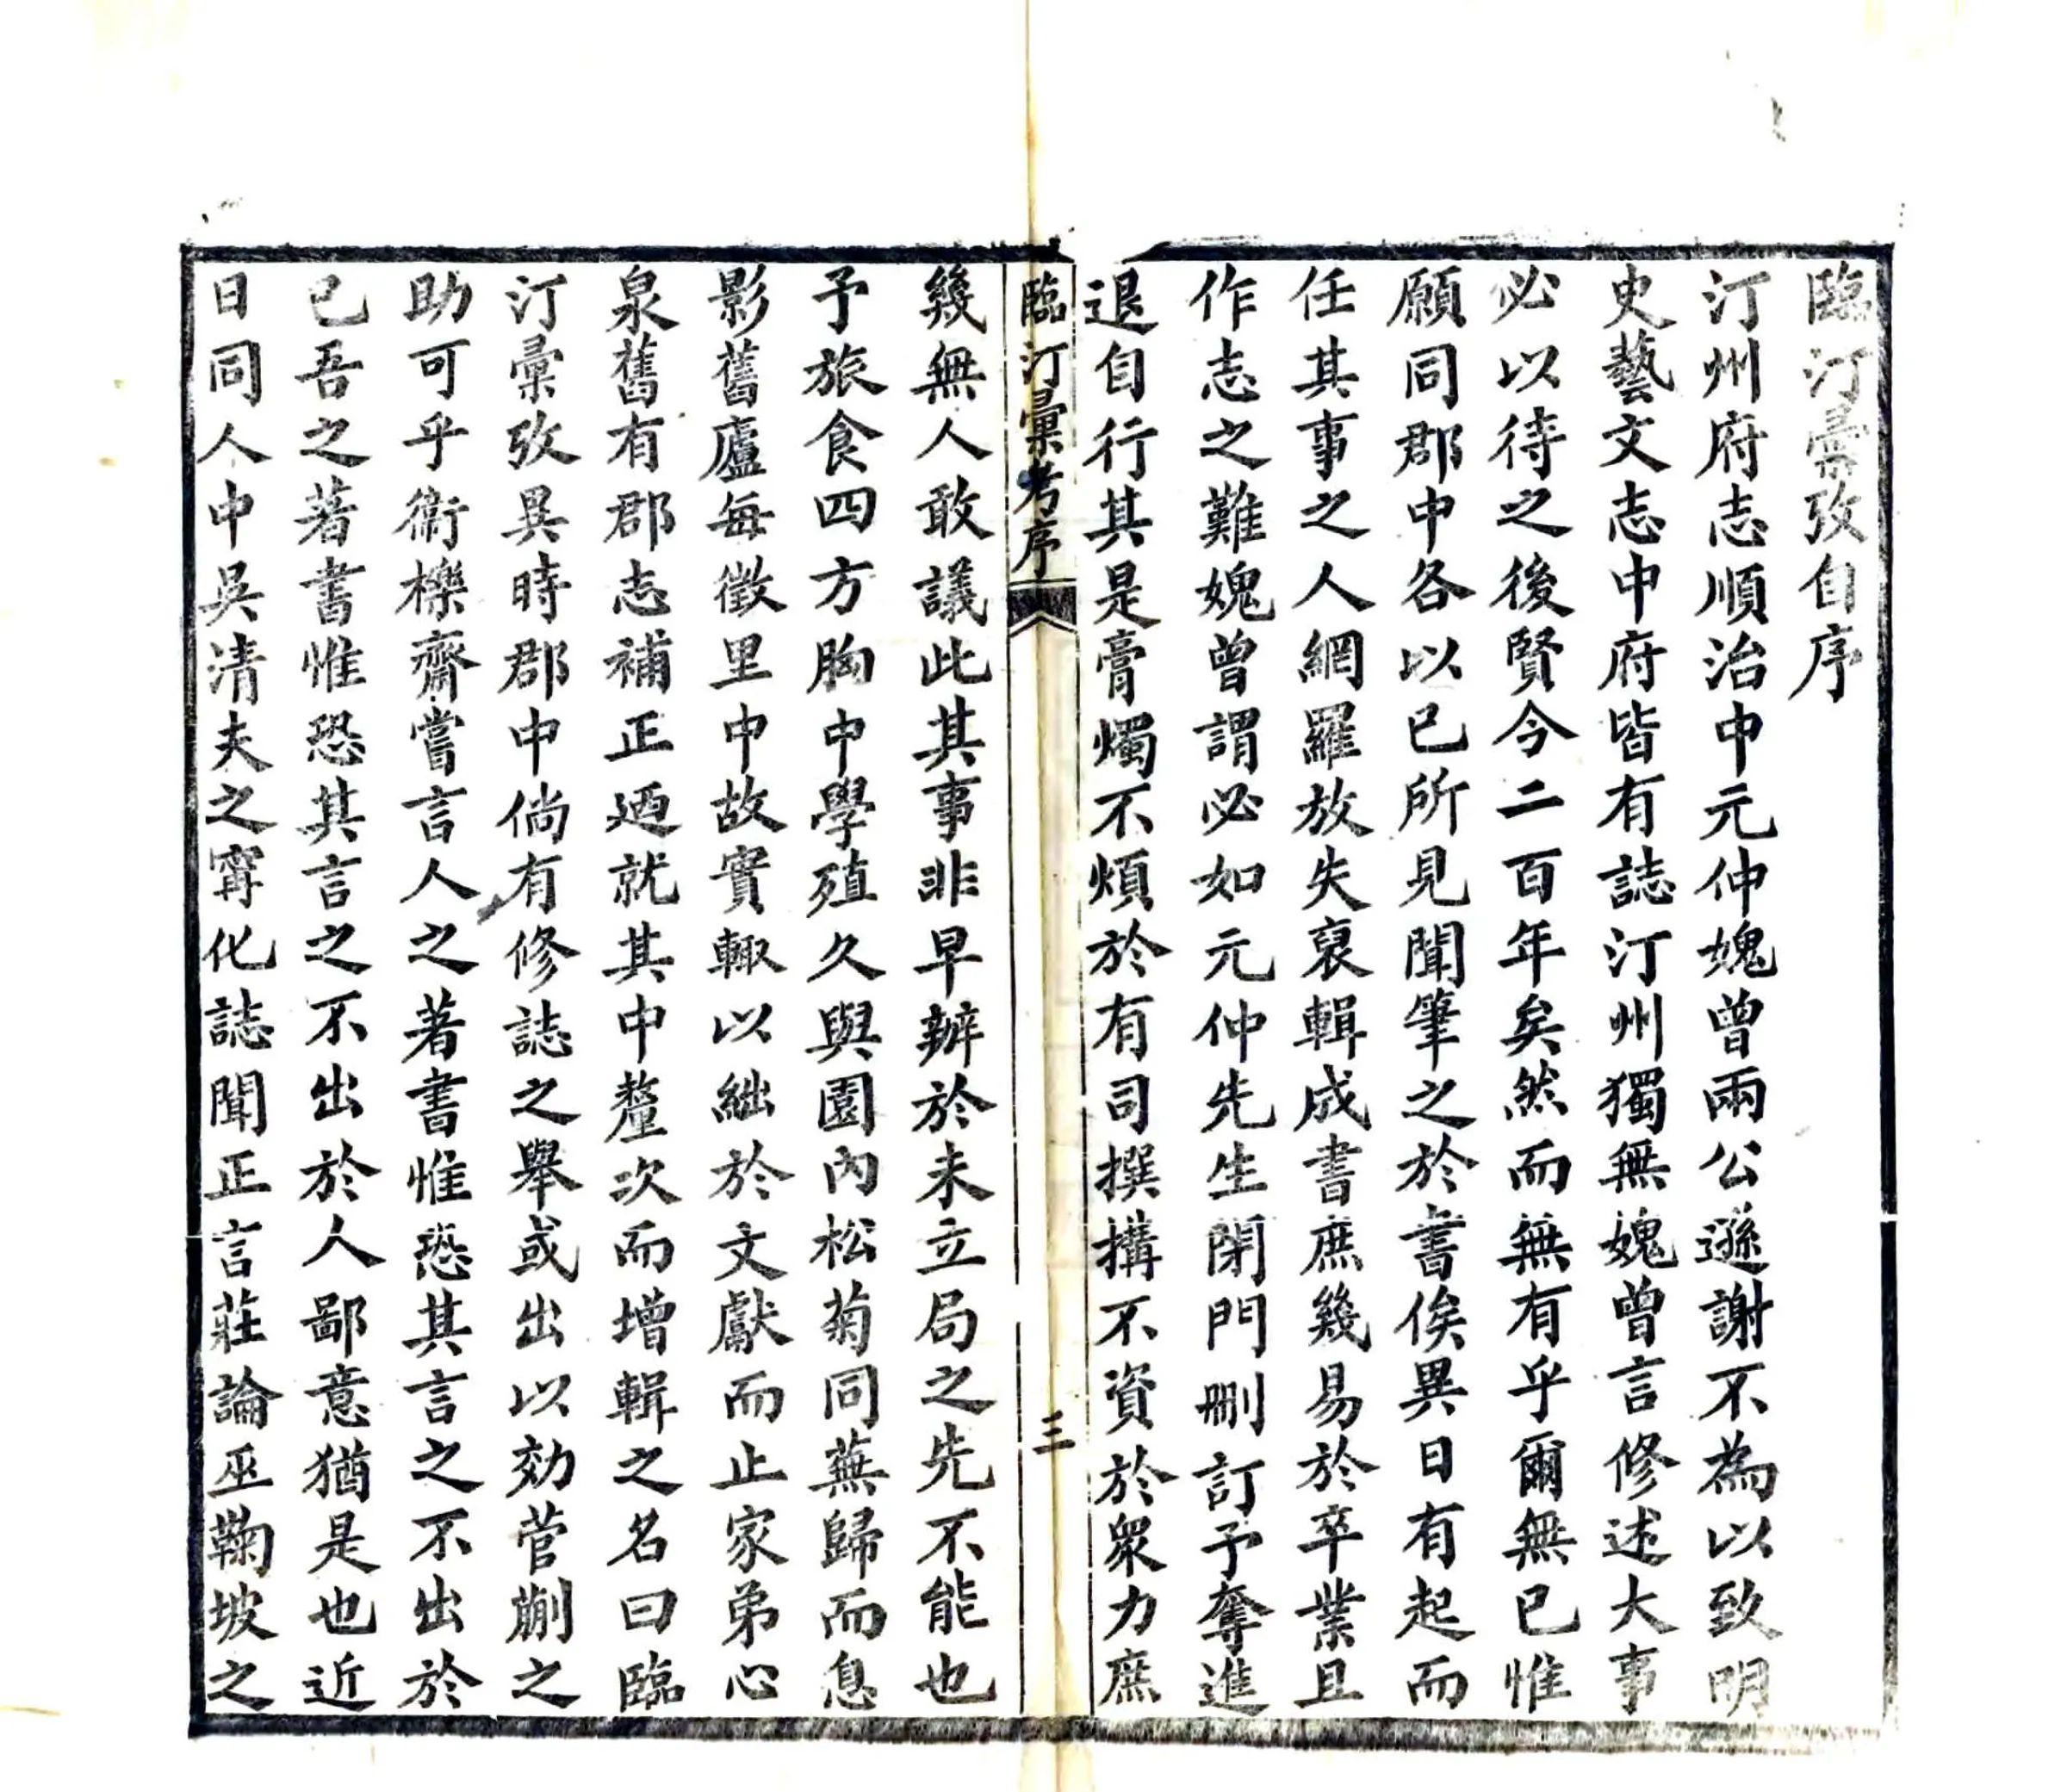 臨汀彙攷自序
汀州府志順治中元仲媿曾兩公遜謝不為以致明
史藝文志中府皆有誌汀州獨無媿曾言修述大事
必以待之後賢今二百年矣然而無有乎爾無已惟
願同郡中各以已所見聞筆之於書俟異日有起而
任其事之人網羅放失裒輯成書庶幾易於卒業且
作志之難媿曾謂必如元仲先生閉門刪訂予奪進
退自行其是膏燭不煩於有司撰搆不資於眾力庶
臨汀彙考序
三
幾無人敢議此其事非早辨於未立局之先不能也
予旅食四方胸中學殖久與園內松菊同蕪歸而息
影舊廬每徵里中故實輙以絀於文獻而止家弟心
泉舊有郡志補正廼就其中釐次而增輯之名曰臨
汀彙攷異時郡中倘有修誌之舉或出以効菅蒯之
助可乎衞櫟齋嘗言人之著書惟恐其言之不出於
已吾之著書惟恐其言之不出於人鄙意猶是也近
日同人中吳清夫之寗化誌聞正言莊論巫鞠坡之